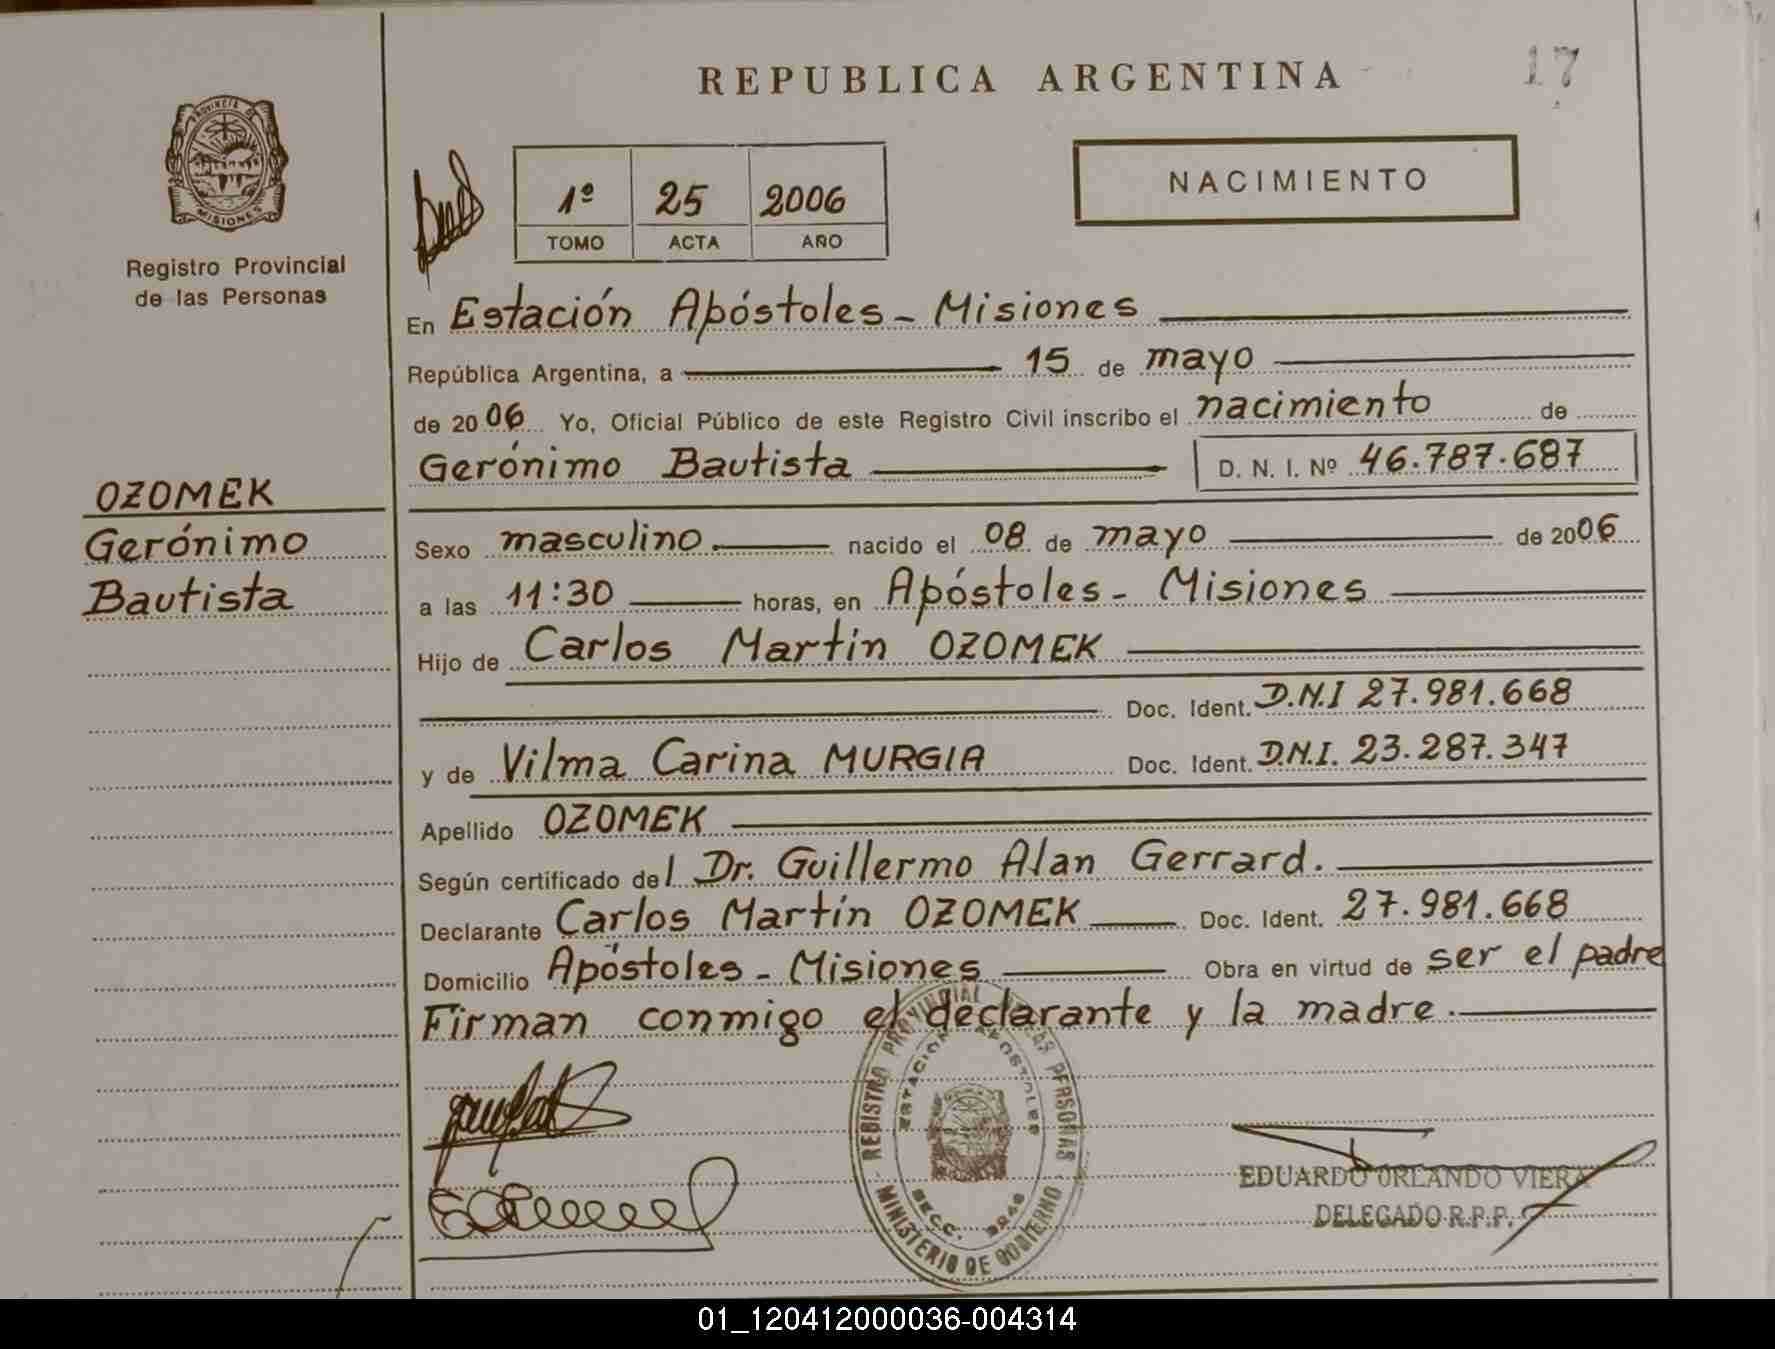 REPUBLICA ARGENTINA
17
PROVINCIA DE
MISIONES
Registro Provincial
de las Personas
1º 25 2006
TOMO ACTA AÑO
NACIMIENTO
En Estación Apóstoles - Misiones
República Argentina, a 15 de mayo
de 2006 Yo, Oficial Público de este Registro Civil inscribo el nacimiento de
Gerónimo Bautista D. N. I. Nº 46.787.687
OZOMEK
Gerónimo
Bautista
Sexo masculino nacido el 08 de mayo de 2006
a las 11:30 horas, en Apóstoles - Misiones
Hijo de Carlos Martín OZOMEK
Doc. Ident. D.N.I 27.981.668
y de Vilma Carina MURGIA Doc. Ident. D.N.I. 23.287.347
Apellido OZOMEK
Según certificado del Dr. Guillermo Alan Gerrard.
Declarante Carlos Martín OZOMEK Doc. Ident. 27.981.668
Domicilio Apóstoles - Misiones Obra en virtud de ser el padre
Firman conmigo el declarante y la madre.
REGISTRO PROVINCIAL DE LAS PERSONAS
ESTACION APOSTOLES
SECC.
MINISTERIO DE GOBIERNO
EDUARDO ORLANDO VIERA
DELEGADO R.P.P.
01_120412000036-004314